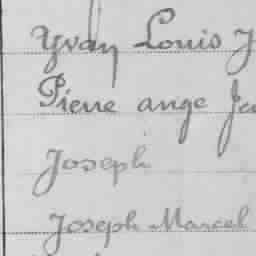 Yvan Louis J
Pierre ange Je
Joseph
Joseph Marcel